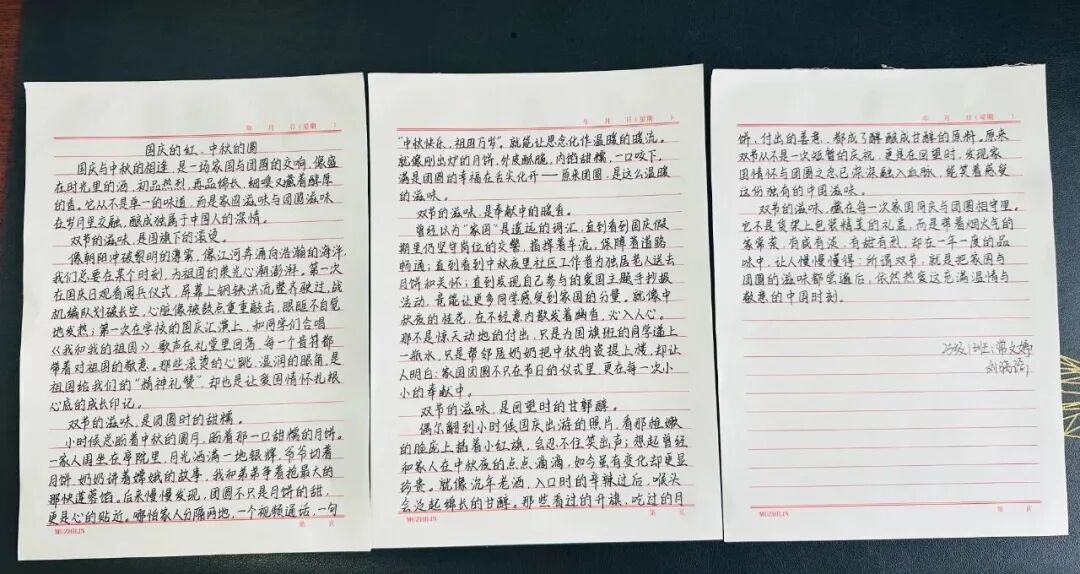 年 月 日(星期 )
国庆的红、中秋的圆
国庆与中秋的相逢,是一场家国与团圆的交响,像盛
在时光里的酒,初品热烈,再品绵长,细嗅又藏着醇厚
的香。它从不是单一的味道,而是家国滋味与团圆滋味
在岁月里交融,酿成独属于中国人的深情。
双节的滋味,是国旗下的滚烫。
像朝阳冲破黎明的薄雾,像江河奔涌向浩瀚的海洋,
我们总要在某个时刻,为祖国的荣光心潮澎湃。第一次
在国庆日观看阅兵仪式,屏幕上钢铁洪流整齐驶过,战
机编队划破长空,心脏像被鼓点重重敲击,眼眶不自觉
地发热;第一次在学校的国庆汇演上,和同学们合唱
《我和我的祖国》,歌声在礼堂里回荡,每一个音符都
带着对祖国的敬意。那些滚烫的心跳,湿润的眼角,是
祖国给我们的“精神礼赞”,却也是让爱国情怀扎根
心底的成长印记。
双节的滋味,是团圆时的甜糯。
小时候总盼着中秋的圆月,盼着那一口甜糯的月饼。
一家人围坐在庭院里,月光洒满一地银辉,爷爷切着
月饼,奶奶讲着嫦娥的故事,我和弟弟争着抢最大的
那块莲蓉馅。后来慢慢发现,团圆不只是月饼的甜,
更是心的贴近。哪怕家人分隔两地,一个视频通话,一句
MUZHILIN
第 页
年 月 日(星期 )
“中秋快乐,祖国万岁”,就能让思念化作温暖的暖流。
就像刚出炉的月饼,外皮酥脆,内馅甜糯,一口咬下,
满是团圆的幸福在舌尖化开——原来团圆,是这么温暖
的滋味。
双节的滋味,是奉献中的暖香。
曾经以为“家国”是遥远的词汇,直到看到国庆假
期里仍坚守岗位的交警,指挥着车流,保障着道路
畅通;直到看到中秋夜里社区工作者为独居老人送去
月饼和关怀;直到发现自己参与的爱国主题手抄报
活动,竟能让更多同学感受到家国的分量。就像中
秋夜的桂花,在不经意内散发着幽香,沁入人心。
那不是惊天动地的付出,只是为国旗班的同学递上
一瓶水,只是帮邻居奶奶把中秋物资提上楼,却让
人明白:家国团圆不只在节日的仪式里,更在每一次小
小的奉献中。
双节的滋味,是回望时的甘醇。
偶尔翻到小时候国庆出游的照片,看那稚嫩
的脸庞上插着小红旗,会忍不住笑出声;想起曾经
和家人在中秋夜的点点滴滴,如今虽有变化却更显
珍贵。就像沉年老酒,入口时的辛辣过后,喉头
会泛起绵长的甘醇。那些看过的升旗,吃过的月
MUZHILIN
第 页
年 月 日(星期 )
饼,付出的善意,都成了酵酿成甘醇的原料。原来
双节从不是一次短暂的庆祝,更是在回望时,发现家
国情怀与团圆之念已深深融入血脉,能笑着感受
这份独有的中国滋味。
双节的滋味,藏在每一次家国同庆与团圆相守里。
它不是货架上包装精美的礼盒,而是带着烟火气的
家常菜,有咸有淡,有甜有烈,却在一年一度的品
味中,让人慢慢懂得:所谓双节,就是把家国与
团圆的滋味都尝遍后,依然热爱这充满温情与
敬意的中国时刻。
班:常文婷
刘
MUZHILIN
第 页